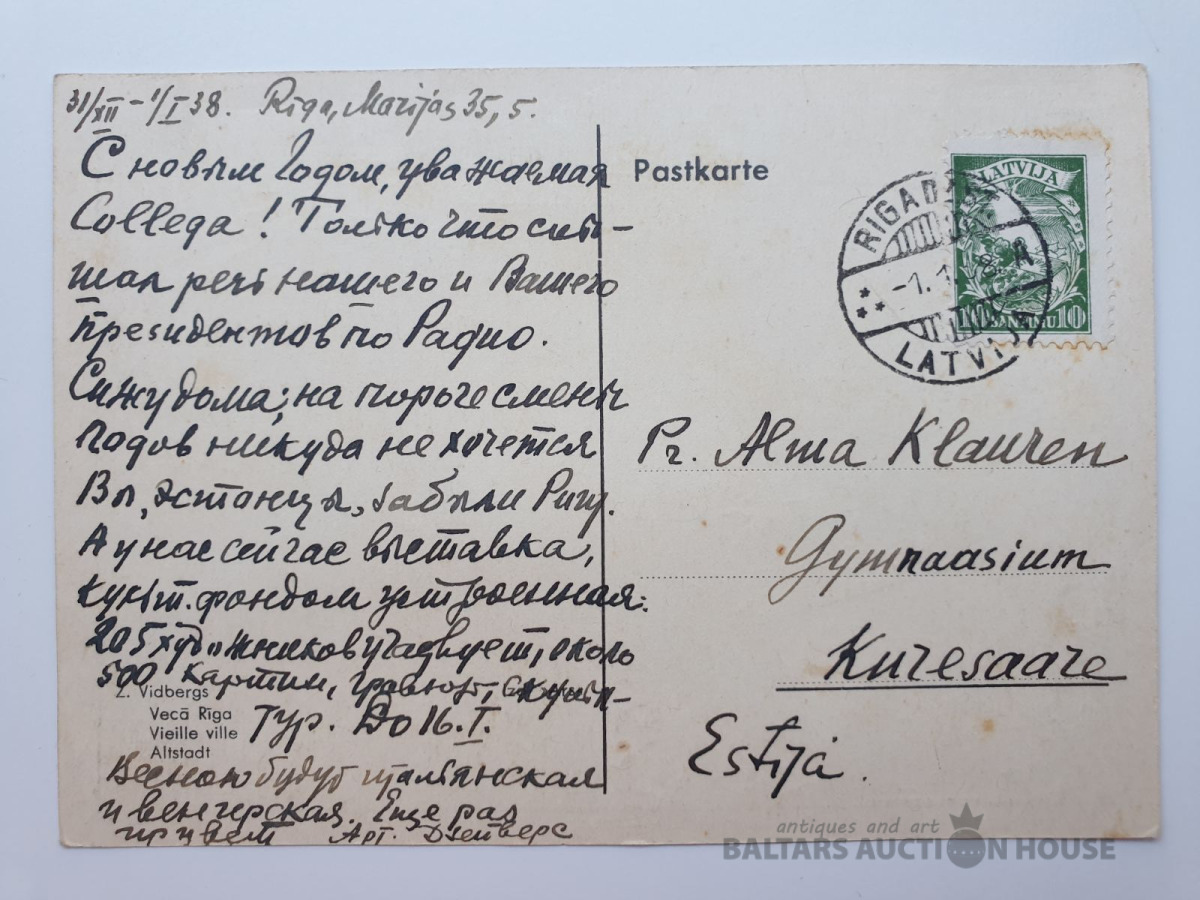 31/XII – 1/I 38. Riga, Marijas 35, 5.
С новым Годом, уважаемая
Collega! Только что слы-
шал речь нашего и Вашего
Президентов по Радио.
Сижу дома; на пороге смены
годов никуда не хочется
Вы, эстонцы, забыли Ригу.
А у нас сейчас выставка,
культ. фондом устроенная:
205 художников участвует, около
500 картин, гравюр, скульп-
тур. До 16.I.
Весною будут итальянская
и венгерская. Еще раз
привет Арт.
Z. Vidbergs
Vecā Rīga
Vieille ville
Altstadt
Pastkarte
LATVIJA
10 SANTIMU 10
RIGA
-1. 1
A
LATVIJA
Pr. Alma Klauren
Gymnaasium
Kuresaare
Estija.
antiques and art
BALTARS AUCTION HOUSE